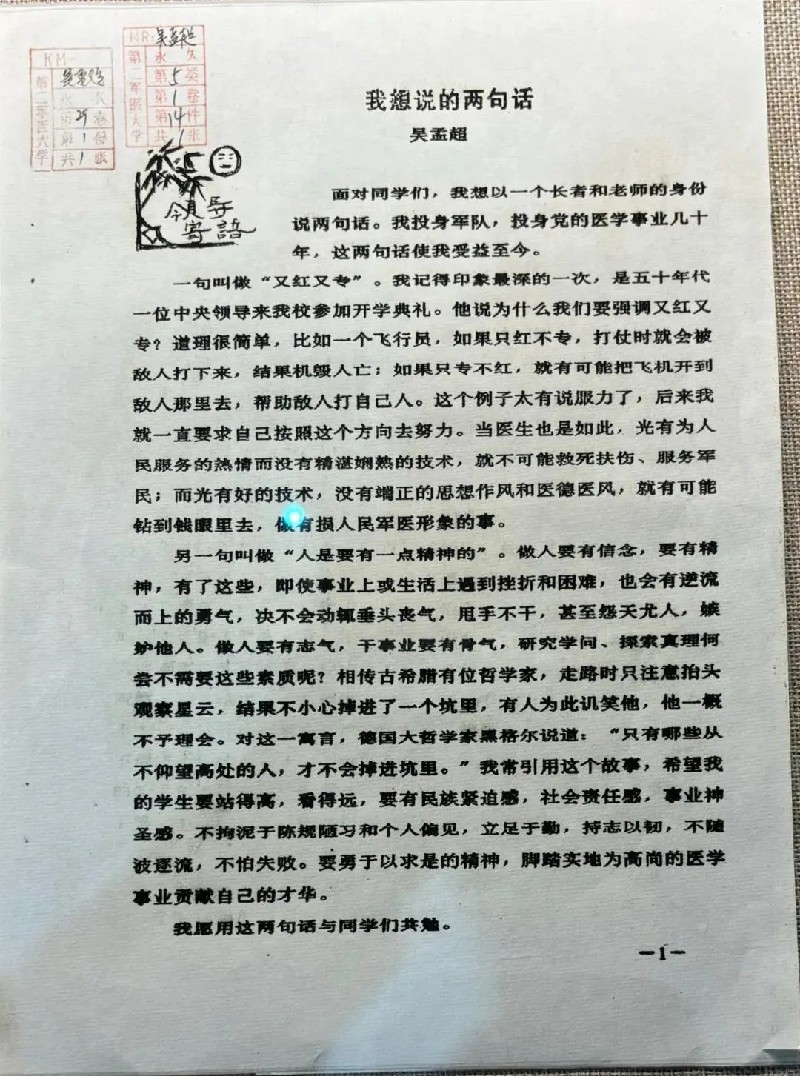 KM-
吴孟超
第二军医大学
永久
第29卷
第1份
共1张
MR:吴孟超
第二军医大学
永久
第5类
第1卷
第14件
共1张
领导
寄语
我想说的两句话
吴孟超
面对同学们，我想以一个长者和老师的身份
说两句话。我投身军队，投身党的医学事业几十
年，这两句话使我受益至今。
一句叫做“又红又专”。我记得印象最深的一次，是五十年代
一位中央领导来我校参加开学典礼。他说为什么我们要强调又红又
专？道理很简单，比如一个飞行员，如果只红不专，打仗时就会被
敌人打下来，结果机毁人亡；如果只专不红，就有可能把飞机开到
敌人那里去，帮助敌人打自己人。这个例子太有说服力了，后来我
就一直要求自己按照这个方向去努力。当医生也是如此，光有为人
民服务的热情而没有精湛娴熟的技术，就不可能救死扶伤、服务军
民；而光有好的技术，没有端正的思想作风和医德医风，就有可能
钻到钱眼里去，做有损人民军医形象的事。
另一句叫做“人是要有一点精神的”。做人要有信念，要有精
神，有了这些，即使事业上或生活上遇到挫折和困难，也会有逆流
而上的勇气，决不会动辄垂头丧气，甩手不干，甚至怨天尤人，嫉
妒他人。做人要有志气，干事业要有骨气，研究学问、探索真理何
尝不需要这些素质呢？相传古希腊有位哲学家，走路时只注意抬头
观察星云，结果不小心掉进了一个坑里，有人为此讥笑他，他一概
不予理会。对这一寓言，德国大哲学家黑格尔说道：“只有哪些从
不仰望高处的人，才不会掉进坑里。”我常引用这个故事，希望我
的学生要站得高，看得远，要有民族紧迫感，社会责任感，事业神
圣感。不拘泥于陈规陋习和个人偏见，立足于勤，持志以韧，不随
波逐流，不怕失败。要勇于以求是的精神，脚踏实地为高尚的医学
事业贡献自己的才华。
我愿用这两句话与同学们共勉。
—1—